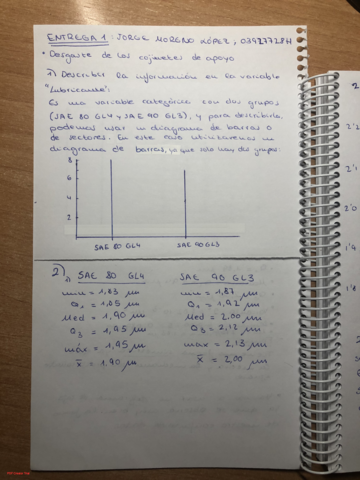 ENTREGA 1: JORGE MORENO LÓPEZ, 03927728H
• Desgaste de los cojinetes de apoyo
1) Describir la información en la variable
"Lubricante":
Es una variable categórica con dos grupos
(SAE 80 GL4 y SAE 90 GL3), y para describirla
podemos usar un diagrama de barras o
de sectores. En este caso utilizaremos un
diagrama de barras, ya que solo hay dos grupos:
8
6
4
2
SAE 80 GL4 SAE 90 GL3
2) SAE 80 GL4 SAE 90 GL3
min = 1,83 μm min = 1,87 μm
Q1 = 1,85 μm Q1 = 1,92 μm
Med = 1,90 μm Med = 2,00 μm
Q3 = 1,95 μm Q3 = 2,12 μm
máx = 1,95 μm max = 2,13 μm
x̄ = 1,90 μm x̄ = 2,00 μm